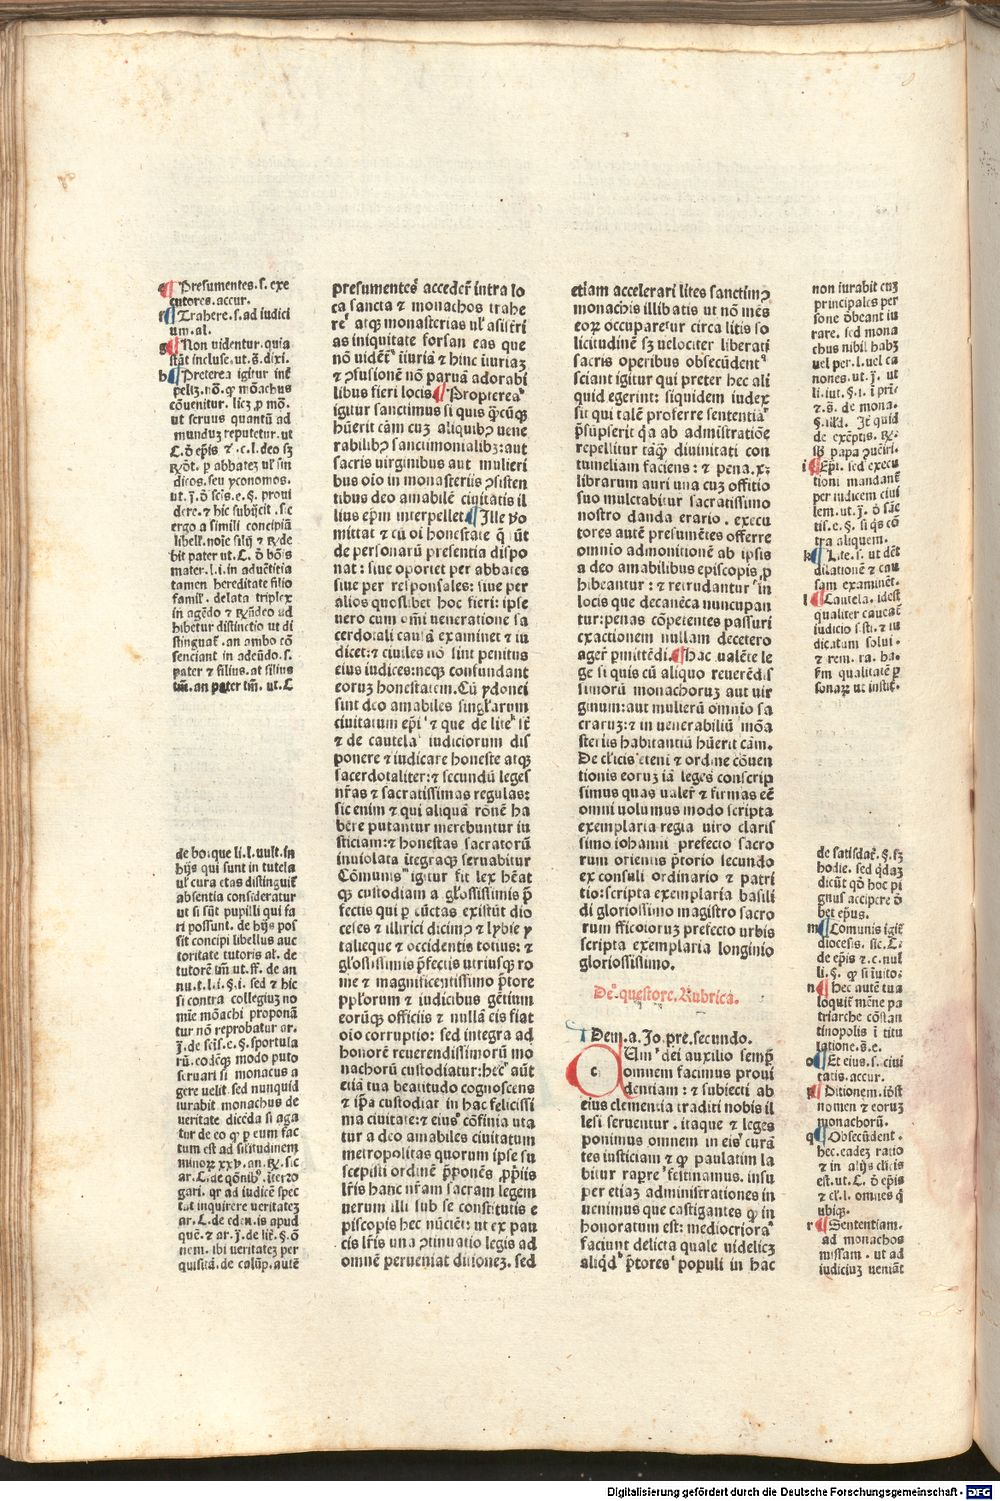 e Presumentes. s. exe
cutores. accur.
f Trahere. s. ad iudici
um. al.
g Non videntur. quia
stāt incluse. ut. s̄. dixi.
h Preterea igitur int̄
cōuenitur. licꝫ ꝑ mō.
ut seruus quantū ad
mundū reputetur. ut
ergo a simili concipiā
tamen hereditate filio
famil'. delata triplex
hibetur distinctio ut di
stinguat̄. an ambo cō
senciant in adeūdo. s.
pater ⁊ filius. at filius
tm̄. an pater tm̄. ut. C
de bo. que li. l. uult. in
hijs qui sunt in tutela
ul' cura etas distinguit̄
absentia consideratur
ut si sūt pupilli qui fa
ri possunt. de hijs pos
sit concipi libellus auc
toritate tutoris al. de
tutorē tm̄ ut. ff. de an
nu. t. l. i. §. i. sed ⁊ hic
si contra collegiuꝫ no
mīe mōachi proponā
tur nō reprobatur ar.
seruari si monacus a
gere uelit sed nunquid
iurabit monachus de
ueritate dicēda si aga
tur de eo ꝙ ꝑ eum fac
tum est ad similitudinem
gari. qr ad iudicē spec
tat inquirere veritateꝫ
nem. ibi ueritateꝫ per
quisitā. de calūp. autē
presumentes accedēt intra lo
ca sancta ⁊ monachos trahe
re atqꝫ monasterias ul' asistri
as iniquitate forsan eas que
nō vidēt̄ iīuria ⁊ hinc iīuriaꝫ
⁊ ꝯfusionē nō paruā adorabi
libus fieri locis Propterea
igitur sanctimus si quis q̄cūqꝫ
hūerit cām cuꝫ aliquibꝫ uene
rabilibꝫ sanctimonialibꝫ: aut
sacris virginibus aut mulieri
bus oīo in monasterijs ꝯsisten
tibus deo amabilē ciuitatis il
lius ep̄m interpellet Ille vo
mittat ⁊ cū oī honestate q̄ ūt
de personarū presentia dispo
nat: siue oportet per abbates
siue per responsales: siue per
alios quoslibet hoc fieri: ipse
uero cum om̄i veneratione sa
cerdotali causā examinet ⁊ iu
dicet: ⁊ ciuiles nō sint penitus
eius iudices: neqꝫ confundant
eorum honestatem. Cū ydonei
sint deo amabiles singl'arum
ciuitatum ep̄i ⁊ que de lite st̄
⁊ de cautela iudiciorum dis
ponere ⁊ iudicare honeste atqꝫ
sacerdotaliter: ⁊ secundū leges
nr̄as ⁊ sacratissimas regulas:
sic enim ⁊ qui aliquā rōnē ha
bēre putantur merebuntur iu
sticiam: ⁊ honestas sacratorū
inuiolata ītegraqꝫ seruabitur
Cōmunis igitur fit lex hēat
qꝫ custodiam a gl'osissimis p̄
fectis qui ꝑ cūctas existūt dio
ceses ⁊ illirici dicimꝰ ⁊ lybie y
talieque ⁊ occidentis totius: ⁊
gl'osissimis p̄fectis utriusqꝫ ro
me ⁊ magnificentissimo p̄tore
ppl'orum ⁊ iudicibus gētium
eorūqꝫ officiis ⁊ nullā eis fiat
oīo corruptio: sed integra ad
honorē reuerendissimorū mo
nachorū custodiatur: hec aūt
etiā tua beatitudo cognoscens
⁊ ip̄a custodiat in hac felicissi
ma ciuitate: ⁊ eius cōfinia uta
tur a deo amabiles ciuitatum
metropolitas quorum ipse su
scepisti ordinē p̄ponēs ꝓpriis
lr̄is hanc nr̄am sacram legem
uerum illi sub se constitutis e
piscopis hec nūcient: ut ex pau
cis lr̄is una ꝯtinuatio legis ad
omnē perueniat ditioneꝫ. sed
etiam accelerari lites sanctimꝰ
monachis illibatis ut nō mēs
eoꝝ occuparetur circa litis so
licitudinē sꝫ velociter liberati
sacris operibus obsecūdent
sciant igitur qui preter hec ali
quid egerint: siquidem iudex
sit qui talē proferre sententiā
p̄sūpserit q̄a ab administratiōe
repellitur tāqꝫ diuinitati con
tumeliam faciens: ⁊ pena. x.
librarum auri una cuꝫ offitio
suo mulctabitur sacratissimo
nostro danda erario. execu
tores autē presumētes offerre
omnio admonitionē ab ipsis
a deo amabilibus episcopis ꝓ
hibeantur: ⁊ retrudantur in
locis que decanēca nuncupan
tur: penas cōpetentes passuri
exactionem nullam decetero
ager̄ ꝑmittēdi. Hac ualēte le
ge si quis cū aliquo reuerēdis
simorū monachoruꝫ aut uir
ginum: aut mulierū omnio sa
craruꝫ: ⁊ in uenerabiliū mōa
sterijs habitantiū hūerit cām.
De cl'icis eteni ⁊ ordine cōuen
tionis eoruꝫ iā leges conscrip
simus quas ualer̄ ⁊ firmas eē
omni uolumus modo scripta
exemplaria regia uiro claris
simo iohanni prefecto sacro
rum orientis p̄torio secundo
ex consuli ordinario ⁊ patri
tio: scripta exemplaria basili
di gloriosissimo magistro sacro
rum officioruꝫ prefecto urbis
scripta exemplaria longinio
gloriosissimo.
De questore. Rubrica.
IDem. a. Io. pre. secundo.
CUm dei auxilio semp̄
omnem facimus proui
dentiam: ⁊ subiecti ab
eius clementia traditi nobis il
lesi seruentur. itaque ⁊ leges
ponimus omnem in eis curā
tes iusticiam ⁊ ꝙ paulatim la
bitur rapre festinamus. insu
per etiaꝫ administrationes in
uenimus que castigantes ꝙ in
honoratum est: mediocriora
faciunt delicta quale uidelicꝫ
aliqd' p̄tores populi in hac
non iurabit cuꝫ
principales per
sone d̄beant iu
rare. sed mona
chus nihil habꝫ
uel per. l. uel ca
nones. ut. j̄. ut
li. iut. §. i. ī prī.
⁊. s̄. de mona.
i Ep̄i. sed execu
tioni mandant̄
per iudicem ciui
lem. ut. j̄. d̄ sāc
tis. e. §. si q̄s cō
tra aliquem.
k Lite. s. ut dēt
dilationē ⁊ cau
sam examinēt.
l Cautela. idest
qualiter caueat̄
iudicio sisti. ⁊ iu
dicatum solui.
⁊ rem. ra. ha.
s'm qualitatē ꝑ
sonaꝝ ut instit.
de satisdat̄. §. sꝫ
hodie. sed q̄daꝫ
dicūt qd̄ hoc pi
gnus accipere d̄
bet ep̄us.
m Comunis igit̄
diocesis. sic. C.
de ep̄is ⁊. c. nul
n Hec autē tua
loquit̄ mēne pa
triarche cōstan
tinopolis ī titu
latione. s. e.
o Et eius. s. ciui
tatis. accur.
p Ditionem. id'st
nomen ⁊ eoruꝫ
monachorū.
q Obsecūdent.
hec. eadeꝫ ratio
⁊ in alijs cl'icis
est. ut. C. d̄ ep̄is
⁊ cl'. l. omnes q̄
ubiqꝫ.
r Sententiam.
ad monachos
missam. ut ad
iudiciuꝫ ueniāt
Digitalisierung gefördert durch die Deutsche Forschungsgemeinschaft - DFG